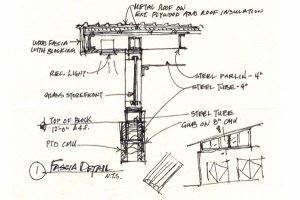 METAL ROOF ON
EXT. PLYWOOD AND ROOF INSULATION
WOOD FASCIA
WITH BLOCKING
REC. LIGHT
STEEL PURLIN - 4"
STEEL TUBE - 4"
GLASS STOREFRONT
TOP OF BLOCK
12'-0" A.F.F.
STEEL TUBE
ON 8" CMU
PTD CMU
1 FASCIA DETAIL
N.T.S.